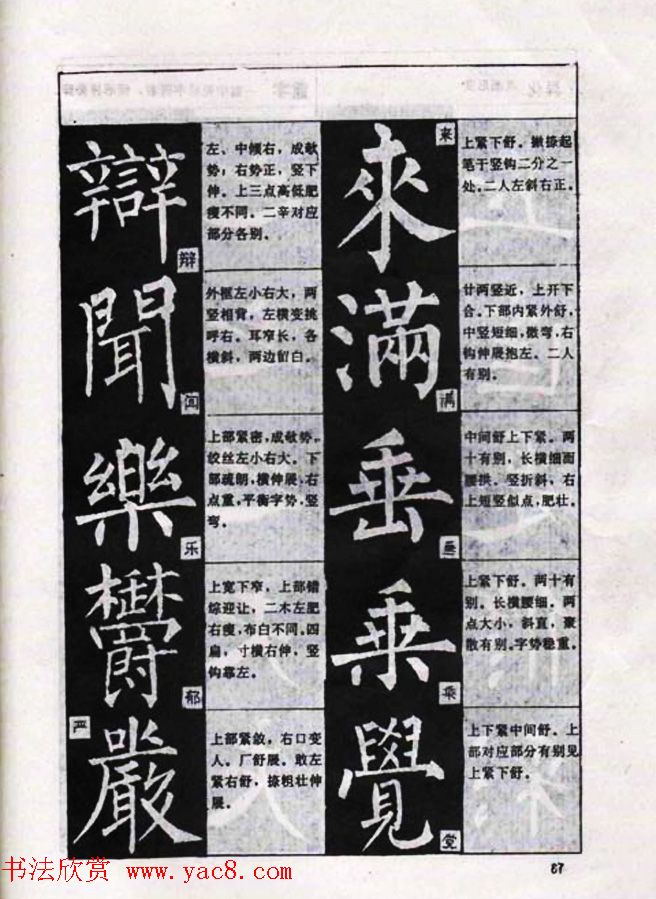 來
来
上紧下舒。撇捺起
笔于竖钩二分之一
处。二人左斜右正。
滿
满
廿两竖近，上开下
合。下部内紧外舒，
中竖短细，微弯，右
钩伸展抱左。二人
有别。
垂
垂
中间舒上下紧。两
十有别，长横细而
腰拱。竖折斜，右
上短竖似点，肥壮。
乘
乘
上紧下舒。两十有
别。长横腰细。两
点大小，斜直，聚
散有别。字势稳重。
覺
觉
上下紧中间舒。上
部对应部分有别见
上紧下舒。
辯
辩
左、中倾右，成欹
势；右势正，竖下
伸。上三点高低肥
瘦不同。二辛对应
部分各别。
聞
闻
外框左小右大，两
竖相背，左横变挑
呼右。耳窄长，各
横斜，两边留白。
樂
乐
上部紧密，成欹势。
绞丝左小右大。下
部疏朗，横伸展，右
点重，平衡字势，竖
弯。
欝
郁
上宽下窄，上部错
综迎让，二木左肥
右瘦，布白不同。四
扁，寸横右伸，竖
钩靠左。
嚴
严
上部紧敛，右口变
人。厂舒展。敢左
紧右舒，捺粗壮伸
展。
书法欣赏 www.yac8.com
87